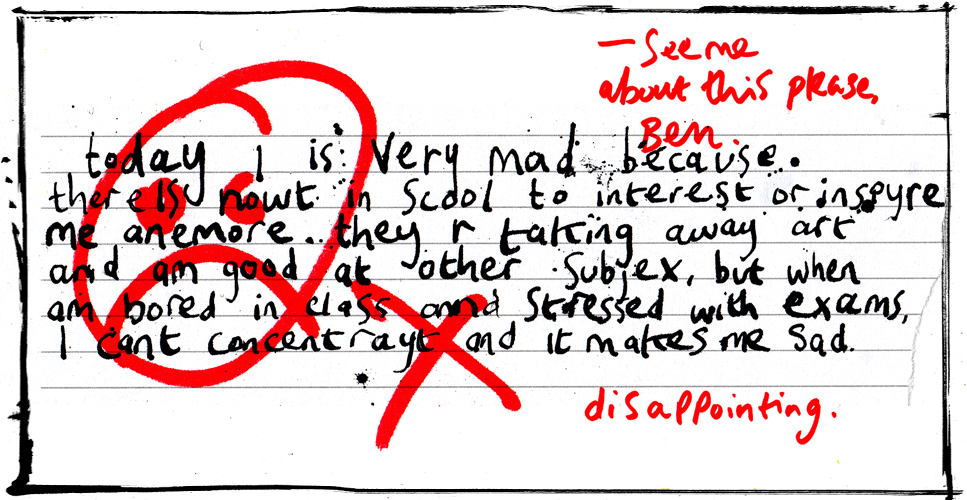 - See me
about this please,
Ben.
today I is very mad because.
thereIs nowt in Scool to interest or inspyre
me anemore.. they r taking away art
and am good at other subjex, but when
am bored in class annd Stressed with exams,
I cant concentrayt and it makes me sad.
disappointing.